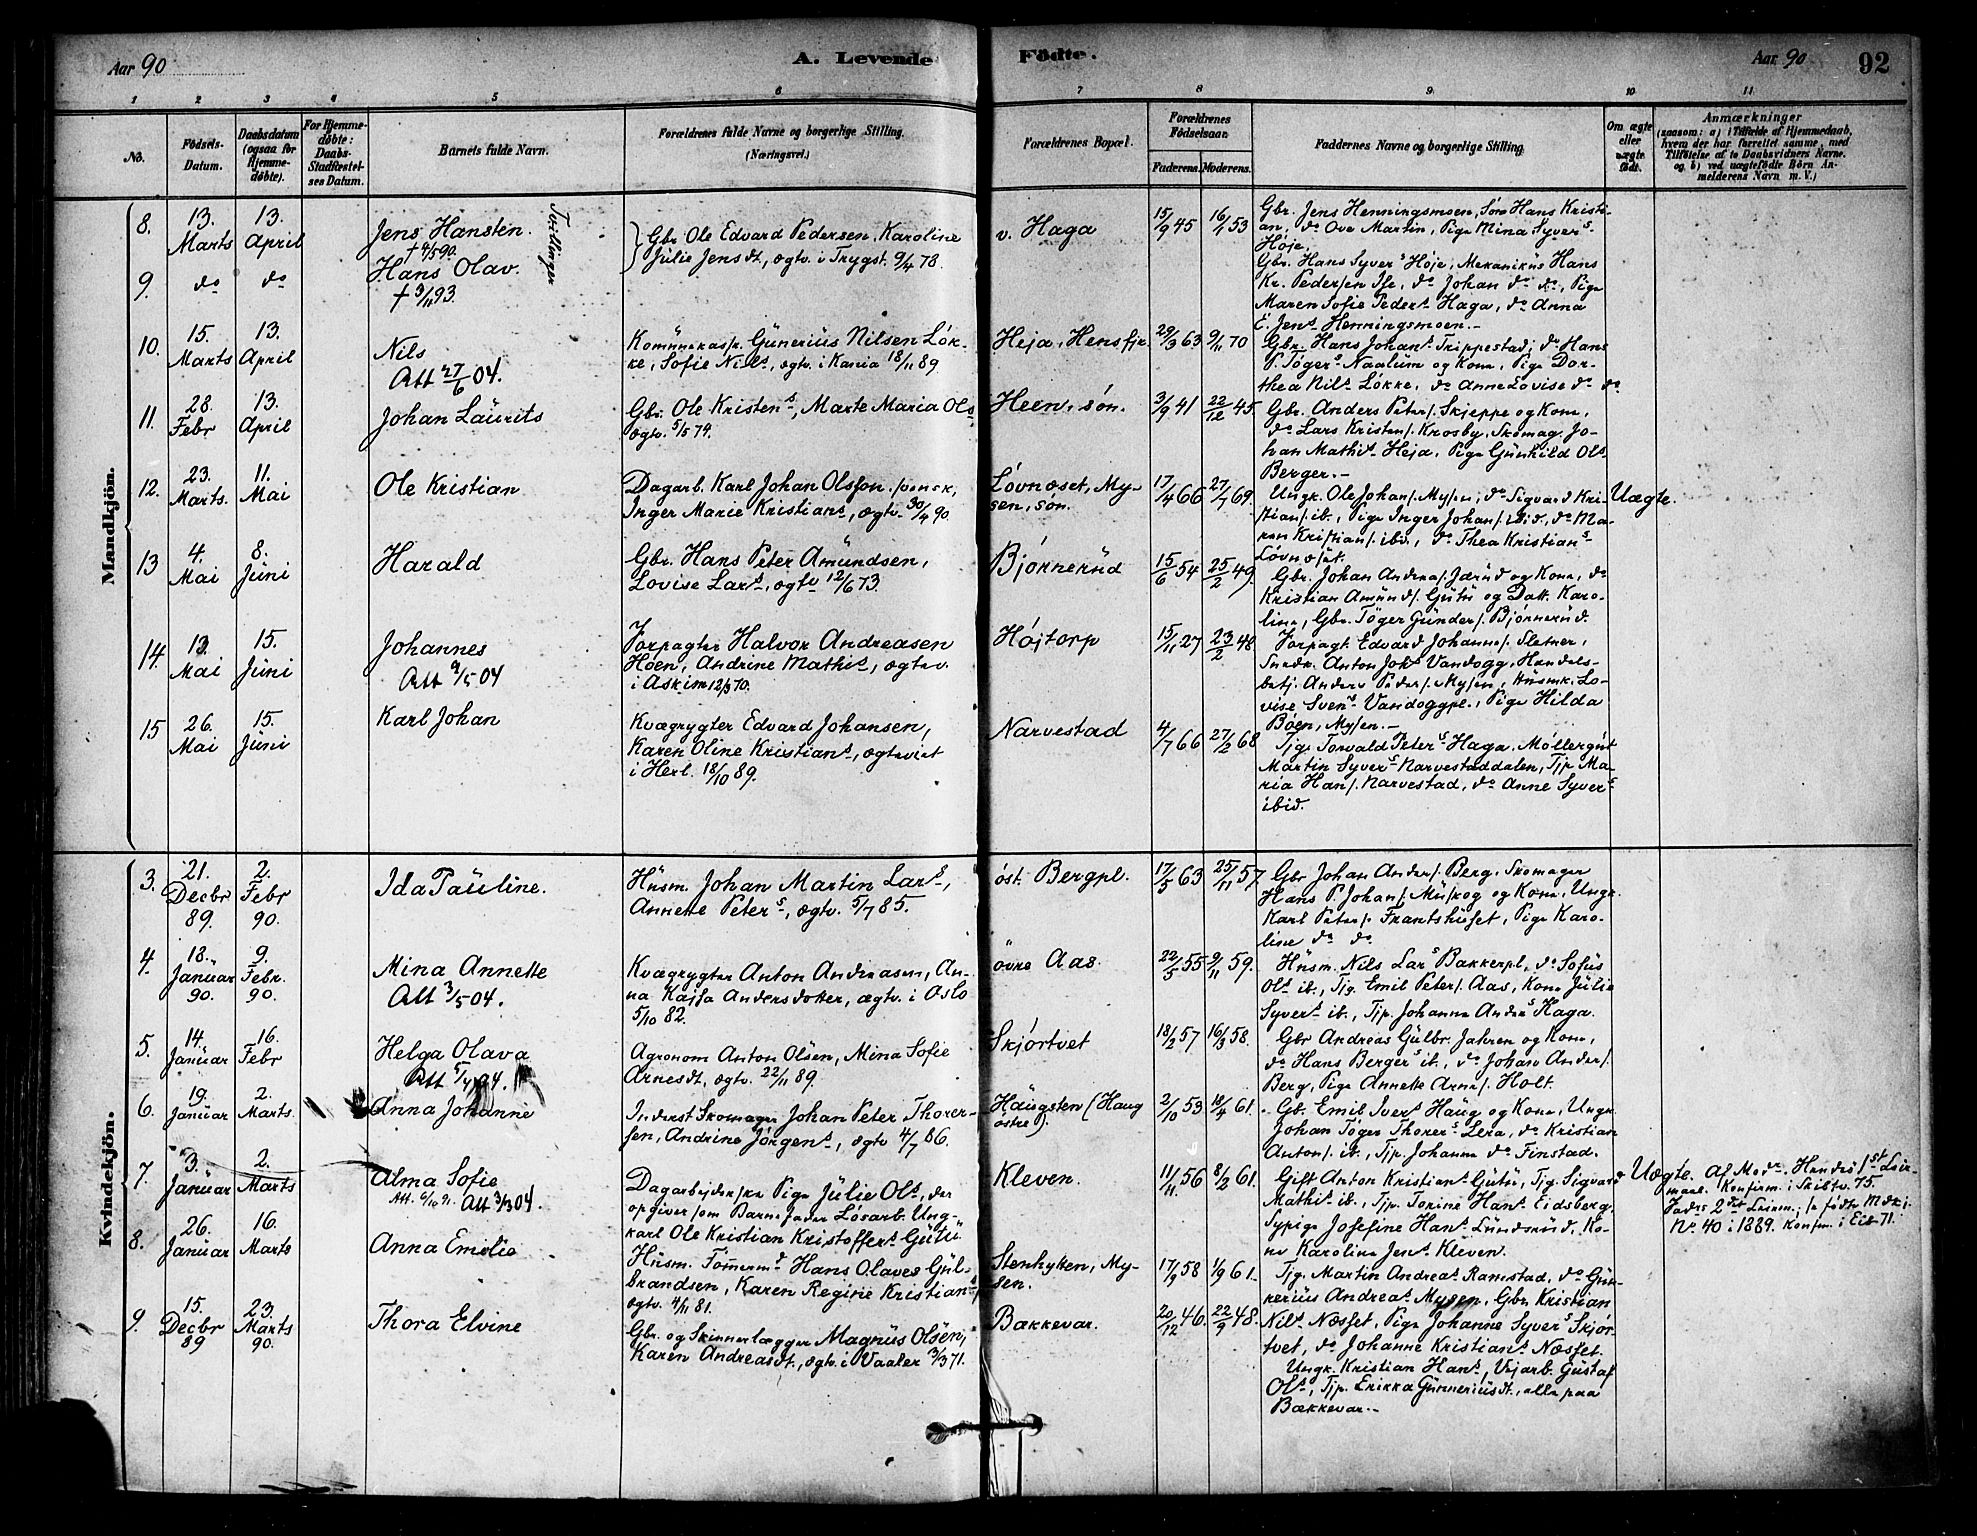 Aar 90 A. Levende Födte. Aar 90 92
1 2 3 4 5 6 7 8 9 10 11
No.
Födsels-Datum.
Daabsdatum (ogsaa for Hjemmedøbte).
For Hjemmedøbte: Daabs-Stadfestelses Datum.
Barnets fulde Navn.
Forældrenes fulde Navne og borgerlige Stilling. (Næringsvei.)
Forældrenes Bopæl.
Forældrenes Fødselsaar.
Faderens. Moderens.
Faddernes Navne og borgerlige Stilling.
Om ægte eller uægte født.
Anmærkninger
(saasom: a) i Tilfælde af Hjemmedaab,
hvem der har forrettet samme, med
Tilføielse af to Daabsvidners Navne.
og b) ved uægtefödte Börn An-
melderens Navn m. V.)
Mandkjön.
8. 13. Marts 13. April
Jens Hansten. † 4/5 90.
Tvillinger
Gbr. Ole Edvard Pedersen, Karoline
Julie Jensdt, ægtv. i Trygst. 9/4 78.
v. Haga
15/9 45 16/1 53
Gbr. Jens Henningsmoen, Søn Hans Kristi-
an, do Ove Martin, Pige Mina Syvers
Höje.
9. do do
Hans Olav. † 3/11 93.
Gbr. Hans Syvers Höje, Mekanikus Hans
Kr. Pedersen Ise, do Johan do do, Pige
Maren Sofie Peders Haga, do Anna
E. Jens Henningsmoen.
10. 15. Marts 13. April
Nils
Att 27/6 04.
Kommunekass. Gunerius Nilsen Løk-
ke, Sofie Nils, ægtv. i Kania 18/11 89
Heja, Hensfjr.
29/3 63 9/11 70
Gbr. Hans Johans Trippestad, do Hans
P. Tögers Naalum og Kone, Pige Dor-
thea Nils Løkke, do Anne Lovise do do
11. 28. Febr 13. April
Johan Laurits
Gbr. Ole Kristens, Marte Maria Ols
ægtv. 5/5 74.
Heen, søn.
3/9 41 22/12 45.
Gbr. Anders Peters. Skjeppe og Kone,
do Lars Kristens. Krosby, Skomag. Jo-
han Mathis Heja, Pige Gunhild Ols
Berger.
12. 23. Marts. 11. Mai
Ole Kristian
Dagarb. Karl Johan Olsson, svensk,
Inger Marie Kristians, ægtv. 30/4 90.
Løvnøset, My-
sen, søn.
17/4 66 27/7 69.
Ungk. Ole Johans. Mysen, do Sigvard Kri-
stians. ib., Pige Inger Johans. ibid., do Ma-
ren Kristians. ibd., do Thea Kristians
Løvnøset.
Uægte.
13 4. Mai 8. Juni
Harald
Gbr. Hans Peter Amundsen,
Lovise Lars, ægtv 12/6 73.
Bjørnerud
15/6 54 25/2 49
Gbr. Johan Andreas. Jærud og Kone, do
Kristian Amunds. Gutu og Datt. Karo-
line, Gbr. Töger Gunders. Bjørnerud.
14. 13. Mai 15. Juni
Johannes
Att 9/5 04
Forpagter Halvor Andreasen
Hoen, Andrine Mathis, ægtev.
i Askim 12/3 70.
Højtorp
15/11 27 23/2 48
Forpagt. Edvard Johanns. Sletner,
Snedk. Anton Johs Vandogg, Handels-
betj. Anders Peders. Mysen, Husmk. Lo-
vise Svens Vandoggpl., Pige Hilda
Boen, Mysen.
15 26. Mai 15. Juni
Karl Johan
Kvægrygter Edvard Johansen,
Karen Oline Kristians, ægteviet
i Herl. 18/10 89.
Narvestad
4/7 66 27/2 68
Tjg. Torvald Peters Haga, Møllergut
Martin Syvers Narvestaddalen, Tjp Ma-
ria Hans. Narvestad, do Anne Syvers
ibid.
Kvindekjön.
3. 21. Decbr 89. 2. Febr 90.
Ida Pauline.
Husm. Johan Martin Lars,
Annette Peters, ægtv. 5/7 85.
øst. Bergpl.
17/5 63 25/11 57
Gbr Johan Anders. Berg, Skomager
Hans P. Johans. Muskog og Kone, Ungk.
Karl Peters. Frantshuset, Pige Karo-
line do do
4. 18. Januar 90. 9. Febr. 90.
Mina Annette
Att 3/5 04.
Kvægrygter Anton Andreasen, An-
na Kajsa Andersdotter, ægtv. i Oslo
5/10 82.
övre Aas.
22/5 55 9/11 59.
Husm. Nils Lars Bakkerpl, do Sofus
Ols ib., Tjg. Emil Peters. Aas, Kone Julie
Syvers ib., Tjp. Johanne Anders Haga.
5. 14. Januar 16. Febr
Helga Olava
Att 5/4 04.
Agronom Anton Olsen, Mina Sofie
Arnesdt, ægtv. 22/11 89.
Skjørtvet
18/2 57 16/3 58.
Gbr Andreas Gulbr. Jahren og Kone,
do Hans Bergers ib., do Johan Anders.
Berg, Pige Annette Arnes. Holt.
6. 19. Januar 2. Marts.
Anna Johanne
Inderst Skomager Johan Peter Thorer-
sen, Andrine Jörgens, ægtv 4/7 86.
Haugsten (Haug
østre).
2/10 53 18/4 61.
Gb. Emil Ivers Haug og Kone, Ungk.
Johan Töger Thorers Lera, do Kristian
Antons. ib., Tjp. Johanne do Finstad.
7. 3. Januar 2. Marts
Alma Sofie
Att. 6/10 91. Att 3/3 04
Dagarbejderske Pige Julie Ols, der
opgiver som Barnefader Løsarb. Ung-
karl Ole Kristian Kristoffers Gutu
Kleven.
11/11 56 8/2 61.
Gift Anton Kristians Gutu, Tjg. Sigvard
Mathis ib., Tjp. Torine Hans Eidsberg,
Sypige Josefine Hans Lundsrud, Ko-
ne Karoline Jens Kleven.
Uægte.
Af Modr. Hendes 1st Leir-
maal. Konfirm. i Skibtv. 75.
Fades 2det Leirm., se födte Mdkj.
No. 40 i 1889. Konfm. i Eid 71.
8. 26. Januar 16. Marts
Anna Emilie
Husm. Tømermd Hans Olaves Gul-
brandsen, Karen Regine Kristians,
ægtv. 4/11 81.
Stenhytten, My-
sen.
17/9 58 1/9 61.
Tjg. Martin Andreas Ramstad, do Gun-
nerius Andreas Mysen, Gbr. Kristian
Nils Næsset, Pige Johanne Syvers Skjør-
tvet, do Johanne Kristians Næsset.
9. 15. Decbr 89 23. Marts 90.
Thora Elvine
Gbr. og Skinnerlægger Magnus Olsen,
Karen Andreasdt., ægtv. i Vaaler 3/3 71.
Bækkevar.
20/12 46. 22/9 48.
Ungk. Kristian Hans, Vejarb. Gustaf
Ols, Tjp. Erikka Gunneriusdt., alle paa
Bækkevar.